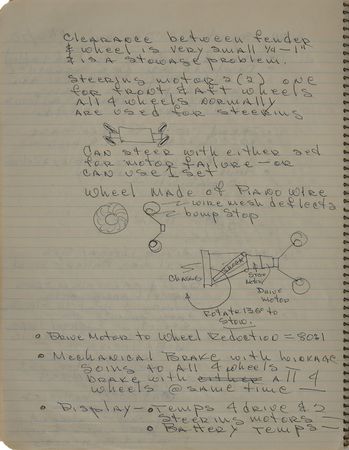 Clearance between fender
& wheel is very small ¼ – 1"
& is a stowage problem.
Steering motors (2) one
for front & aft wheels
All 4 wheels normally
are used for steering
Can steer with either set
for motor failure – or
can use 1 set
Wheel made of Piano wire
wire mesh deflects
bump stop
Chassis
Shock
Ster
Motor
Drive
motor
Rotate 135° to
stow.
• Drive Motor to Wheel Reduction = 80:1
• Mechanical Brake with linkage
going to all 4 wheels –
brake with either all 4
wheels @ same time –
• Display – • Temps 4 drive & 2
steering motors –
• Battery Temps –